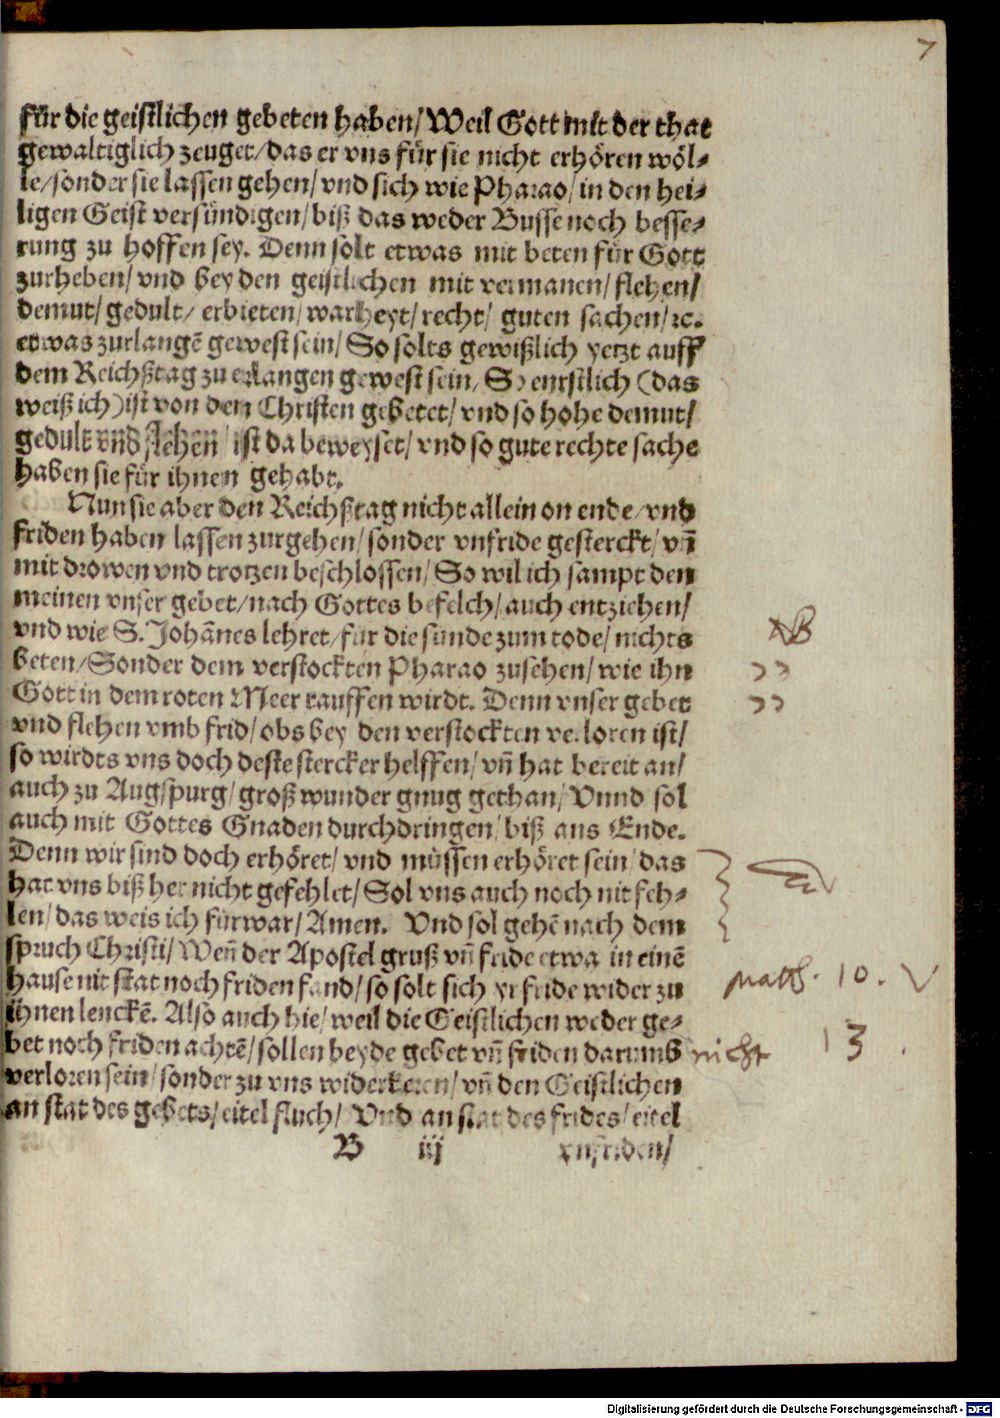 7
für die geistlichen gebeten haben/ Weil Gott mit der that
gewaltiglich zeuget/ das er vns für sie nicht erhören wöl-
le/ sonder sie lassen gehen/ vnd sich wie Pharao/ in den hei-
ligen Geist versündigen/ biß das weder Busse noch besse-
rung zu hoffen sey. Denn solt etwas mit beten für Gott
zurheben/ vnd bey den geistlichen mit vermanen/ flehen/
demut/ gedult/ erbieten/ warheyt/ recht/ guten sachen/ ꝛc.
etwas zurlangē gewest sein/ So solts gewißlich yetzt auff
dem Reichßtag zu erlangen gewest sein/ So ernstlich (das
weiß ich) ist von den Christen gebetet/ vnd so hohe demut/
gedult vnd flehen/ ist da beweyset/ vnd so gute rechte sache
haben sie für ihnen gehabt.
Nun sie aber den Reichßtag nicht allein on ende/ vnd
friden haben lassen zurgehen/ sonder vnfride gesterckt/ vñ
mit drowen vnd trotzen beschlossen/ So wil ich sampt den
meinen vnser gebet/ nach Gottes befelch/ auch entziehen/
vnd wie S. Johānes lehret/ für die sünde zum tode/ nichts
NB
beten/ Sonder dem verstockten Pharao zusehen/ wie ihn
Gott in dem roten Meer tauffen wirdt. Denn vnser gebet
vnd flehen vmb frid/ obs bey den verstockten verloren ist/
so wirdts vns doch deste stercker helffen/ vñ hat bereit an/
auch zu Augspurg/ groß wunder gnug gethan/ Vnnd sol
auch mit Gottes Gnaden durchdringen/ biß ans Ende.
Denn wir sind doch erhöret/ vnd müssen erhöret sein/ das
hat vns biß her nicht gefehlet/ Sol vns auch noch nit feh-
len/ das weis ich fürwar/ Amen. Vnd sol gehē nach dem
spruch Christi/ Weñ der Apostel gruß vñ fride etwa in einē
hause nit stat noch friden fand/ so solt sich yr fride wider zu
Matth. 10. V
ihnen lenckē. Also auch hie/ weil die Geistlichen weder ge-
13.
bet noch friden achtē/ sollen beyde gebet vñ friden darumb
nicht
verloren sein/ sonder zu vns widerkeren/ vñ den Geistlichen
an stat des gebets/ eitel fluch/ Vnd an stat des frides/ eitel
B iij vnfriden/
Digitalisierung gefördert durch die Deutsche Forschungsgemeinschaft - DFG